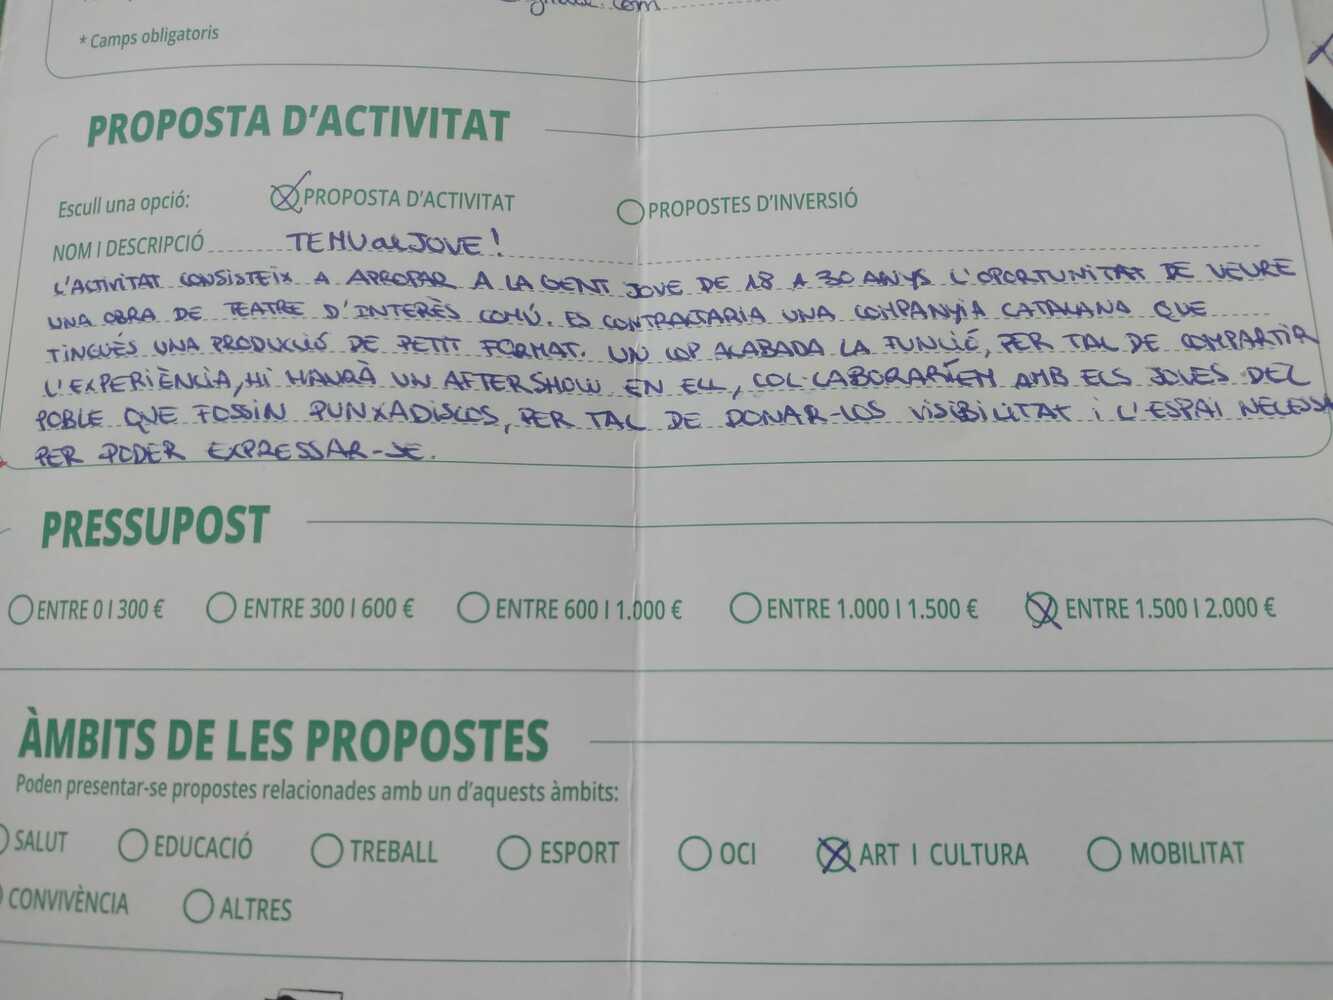 .com
* Camps obligatoris
PROPOSTA D'ACTIVITAT
Escull una opció: PROPOSTA D'ACTIVITAT PROPOSTES D'INVERSIÓ
NOM I DESCRIPCIÓ TEMU al JOVE!
L'ACTIVITAT CONSISTEIX A APROPAR A LA GENT JOVE DE 18 A 30 ANYS L'OPORTUNITAT DE VEURE
UNA OBRA DE TEATRE D'INTERÈS COMÚ. ES CONTRACTARIA UNA COMPANYIA CATALANA QUE
TINGUÈS UNA PRODUCCIÓ DE PETIT FORMAT. UN COP ACABADA LA FUNCIÓ, PER TAL DE COMPARTIR
L'EXPERIÈNCIA, HI HAURÀ UN AFTERSHOW EN ELL, COL·LABORARÍEM AMB ELS JOVES DEL
POBLE QUE FOSSIN PUNXADISCOS, PER TAL DE DONAR-LOS VISIBILITAT I L'ESPAI NECESSA
PER PODER EXPRESSAR-SE.
PRESSUPOST
ENTRE 0 I 300 € ENTRE 300 I 600 € ENTRE 600 I 1.000 € ENTRE 1.000 I 1.500 € ENTRE 1.500 I 2.000 €
ÀMBITS DE LES PROPOSTES
Poden presentar-se propostes relacionades amb un d'aquests àmbits:
SALUT EDUCACIÓ TREBALL ESPORT OCI ART I CULTURA MOBILITAT
CONVIVÈNCIA ALTRES